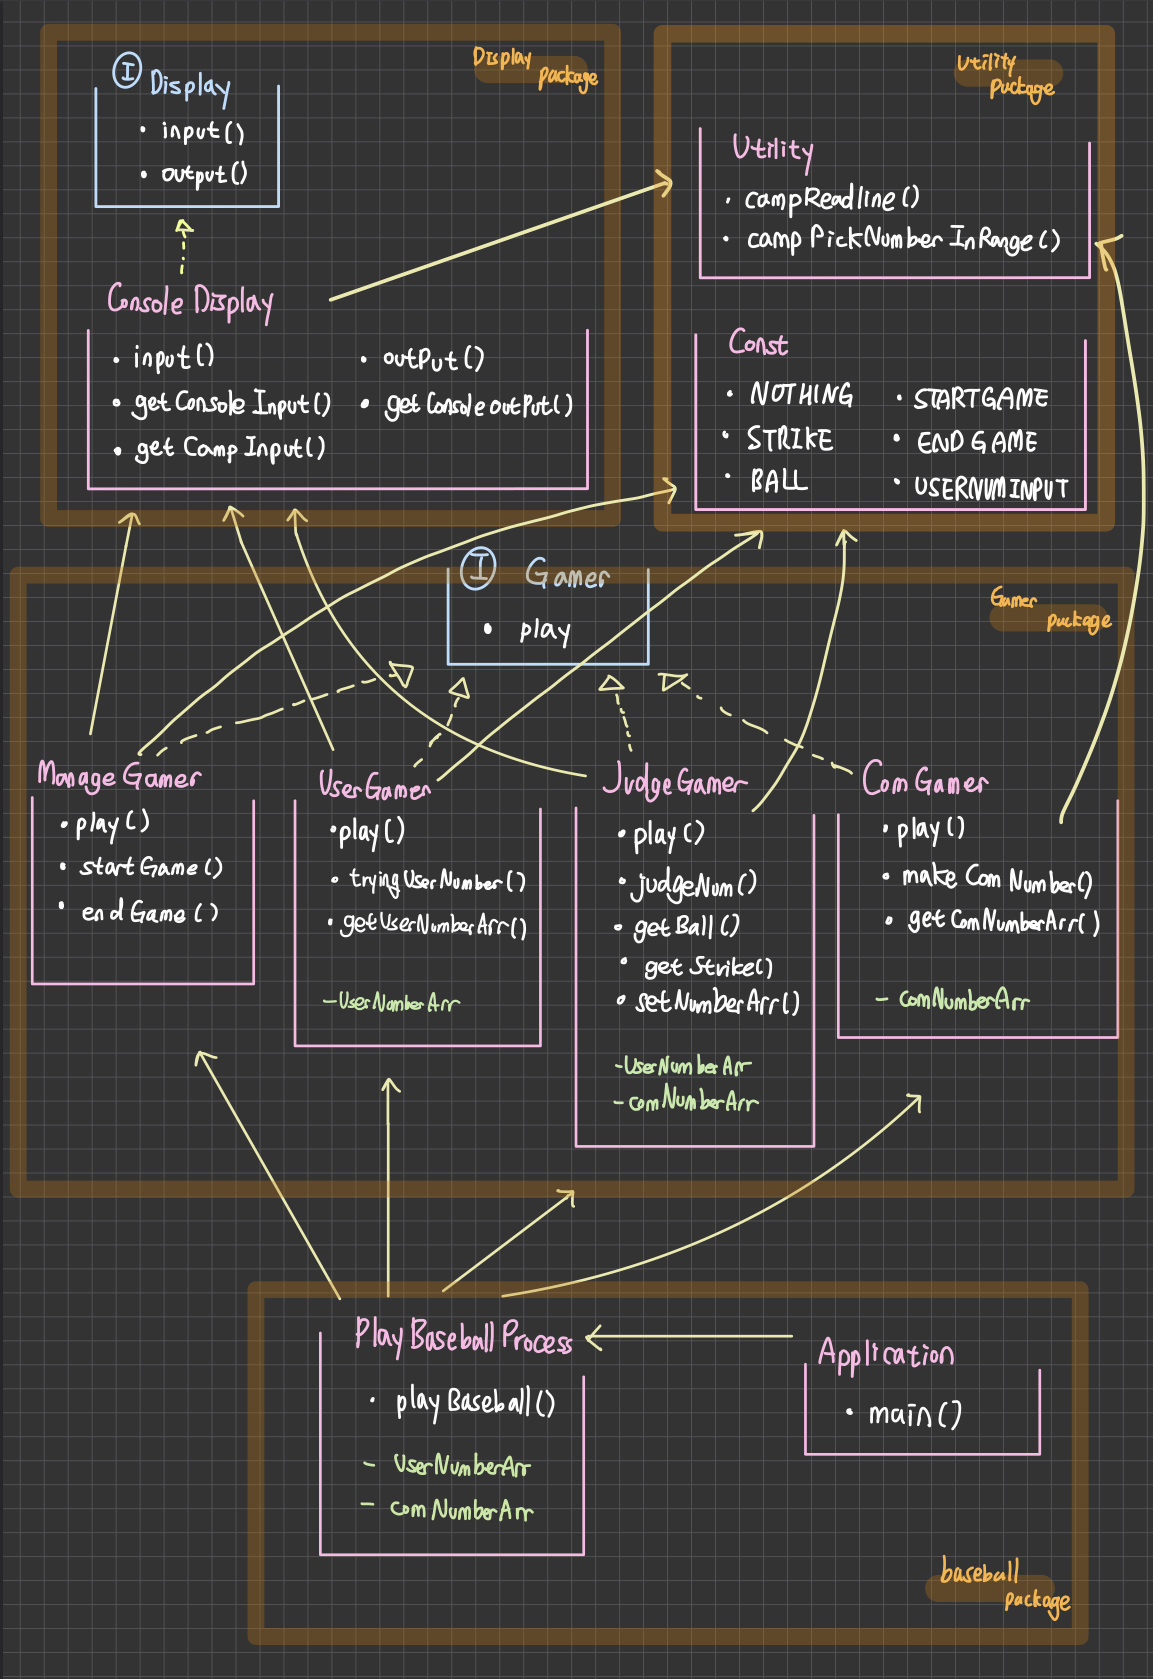 Display
package
I Display
• input()
• output()
Console Display
• input()
• outPut()
• getConsole Input()
• getConsoleoutPut()
• get Camp Input()
Utility
puckage
Utility
• campReadline()
• camp PickNumber InRange()
Const
• NOTHING
• STARTGAME
• STRIKE
• END GAME
• BALL
• USERNUMINPUT
I Gamer
• play
Gamer
puckage
Manage Gamer
• play()
• startGame()
• endGame()
UserGamer
• play()
• tryingUserNumber()
• getUserNumberArr()
- UserNumberArr
JudgeGamer
• play()
• judgeNum()
• getBall()
• getStrike()
• setNumberArr()
- UserNumberArr
- comNumberArr
Com Gamer
• play()
• make Com Number()
• getComNumberArr()
- comNumberArr
Play Baseball Process
• play Baseball()
- UserNumberArr
- comNumberArr
Application
• main()
baseball
package